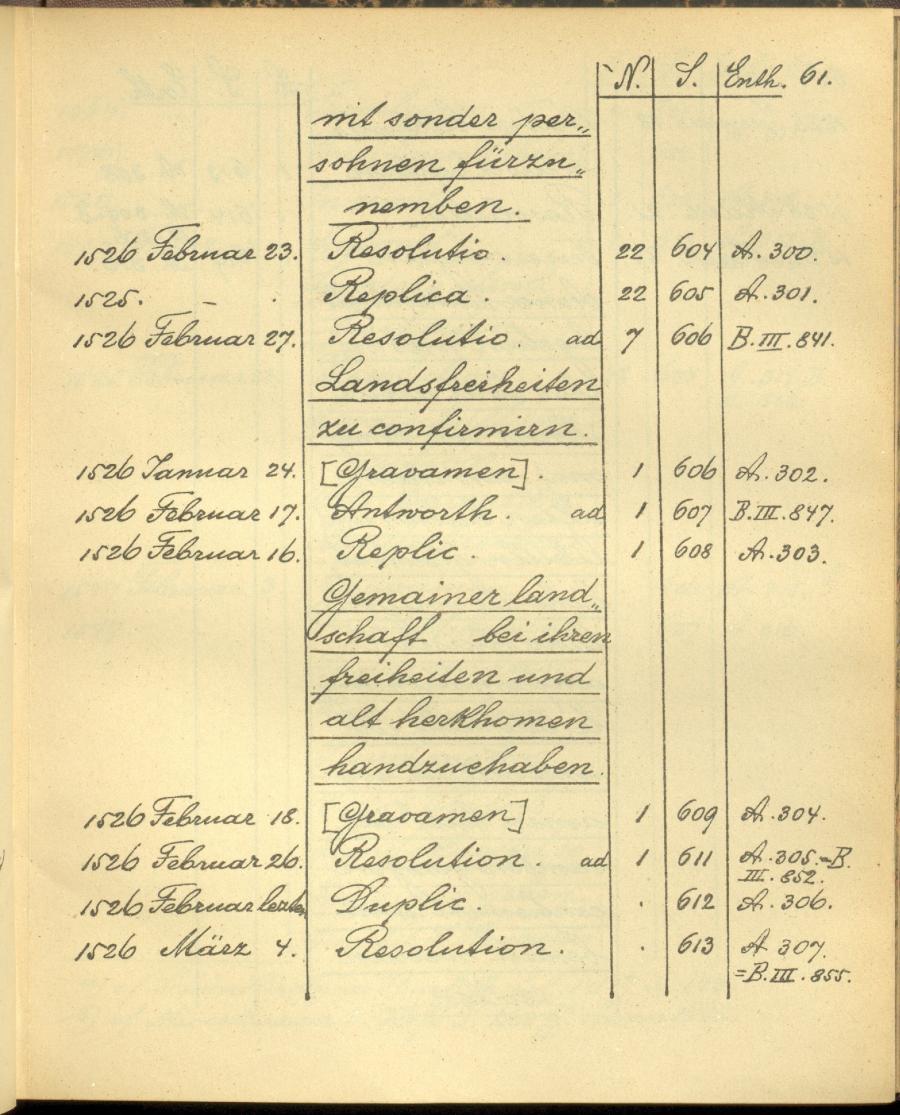 N. S. Enth. 61.
mit sonder per„
sohnen fürzu„
nemben.
1526 Februar 23. Resolutio. 22 604 A. 300.
1525. – . Replica. 22 605 A. 301.
1526 Februar 27. Resolutio. ad 7 606 B. III. 841.
Landsfreiheiten
zu confirmirn.
1526 Januar 24. [Gravamen]. 1 606 A. 302.
1526 Februar 17. Antworth. ad 1 607 B. III. 847.
1526 Februar 16. Replic. 1 608 A. 303.
Gemainer land„
schaft bei ihren
freiheiten und
alt herkhomen
handzuehaben.
1526 Februar 18. [Gravamen] 1 609 A. 304.
1526 Februar 26. Resolution. ad 1 611 A. 305. = B.
III. 852.
1526 Februar lezten Duplic. . 612 A. 306.
1526 März 4. Resolution. . 613 A 307.
= B. III. 855.